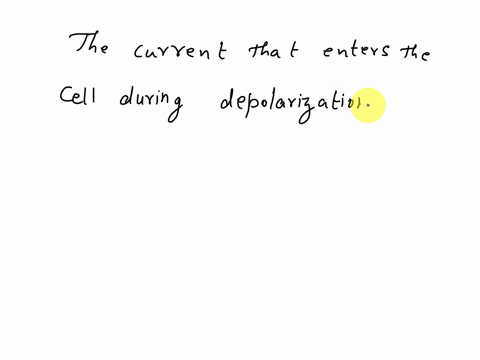 The current that enters the
Cell during depolarization.